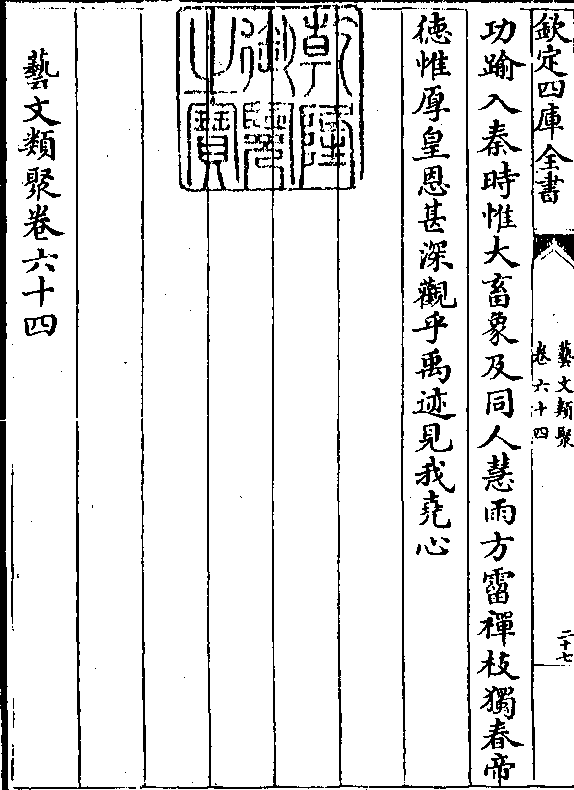 欽定四庫全書
藝文類聚
卷六十四
二十七
功踰入秦時惟大畜象及同人慧雨方霤禪枝獨春帝
徳惟厚皇恩甚深觀乎禹迹見我堯心
乾隆
御覽
之寶
藝文類聚卷六十四